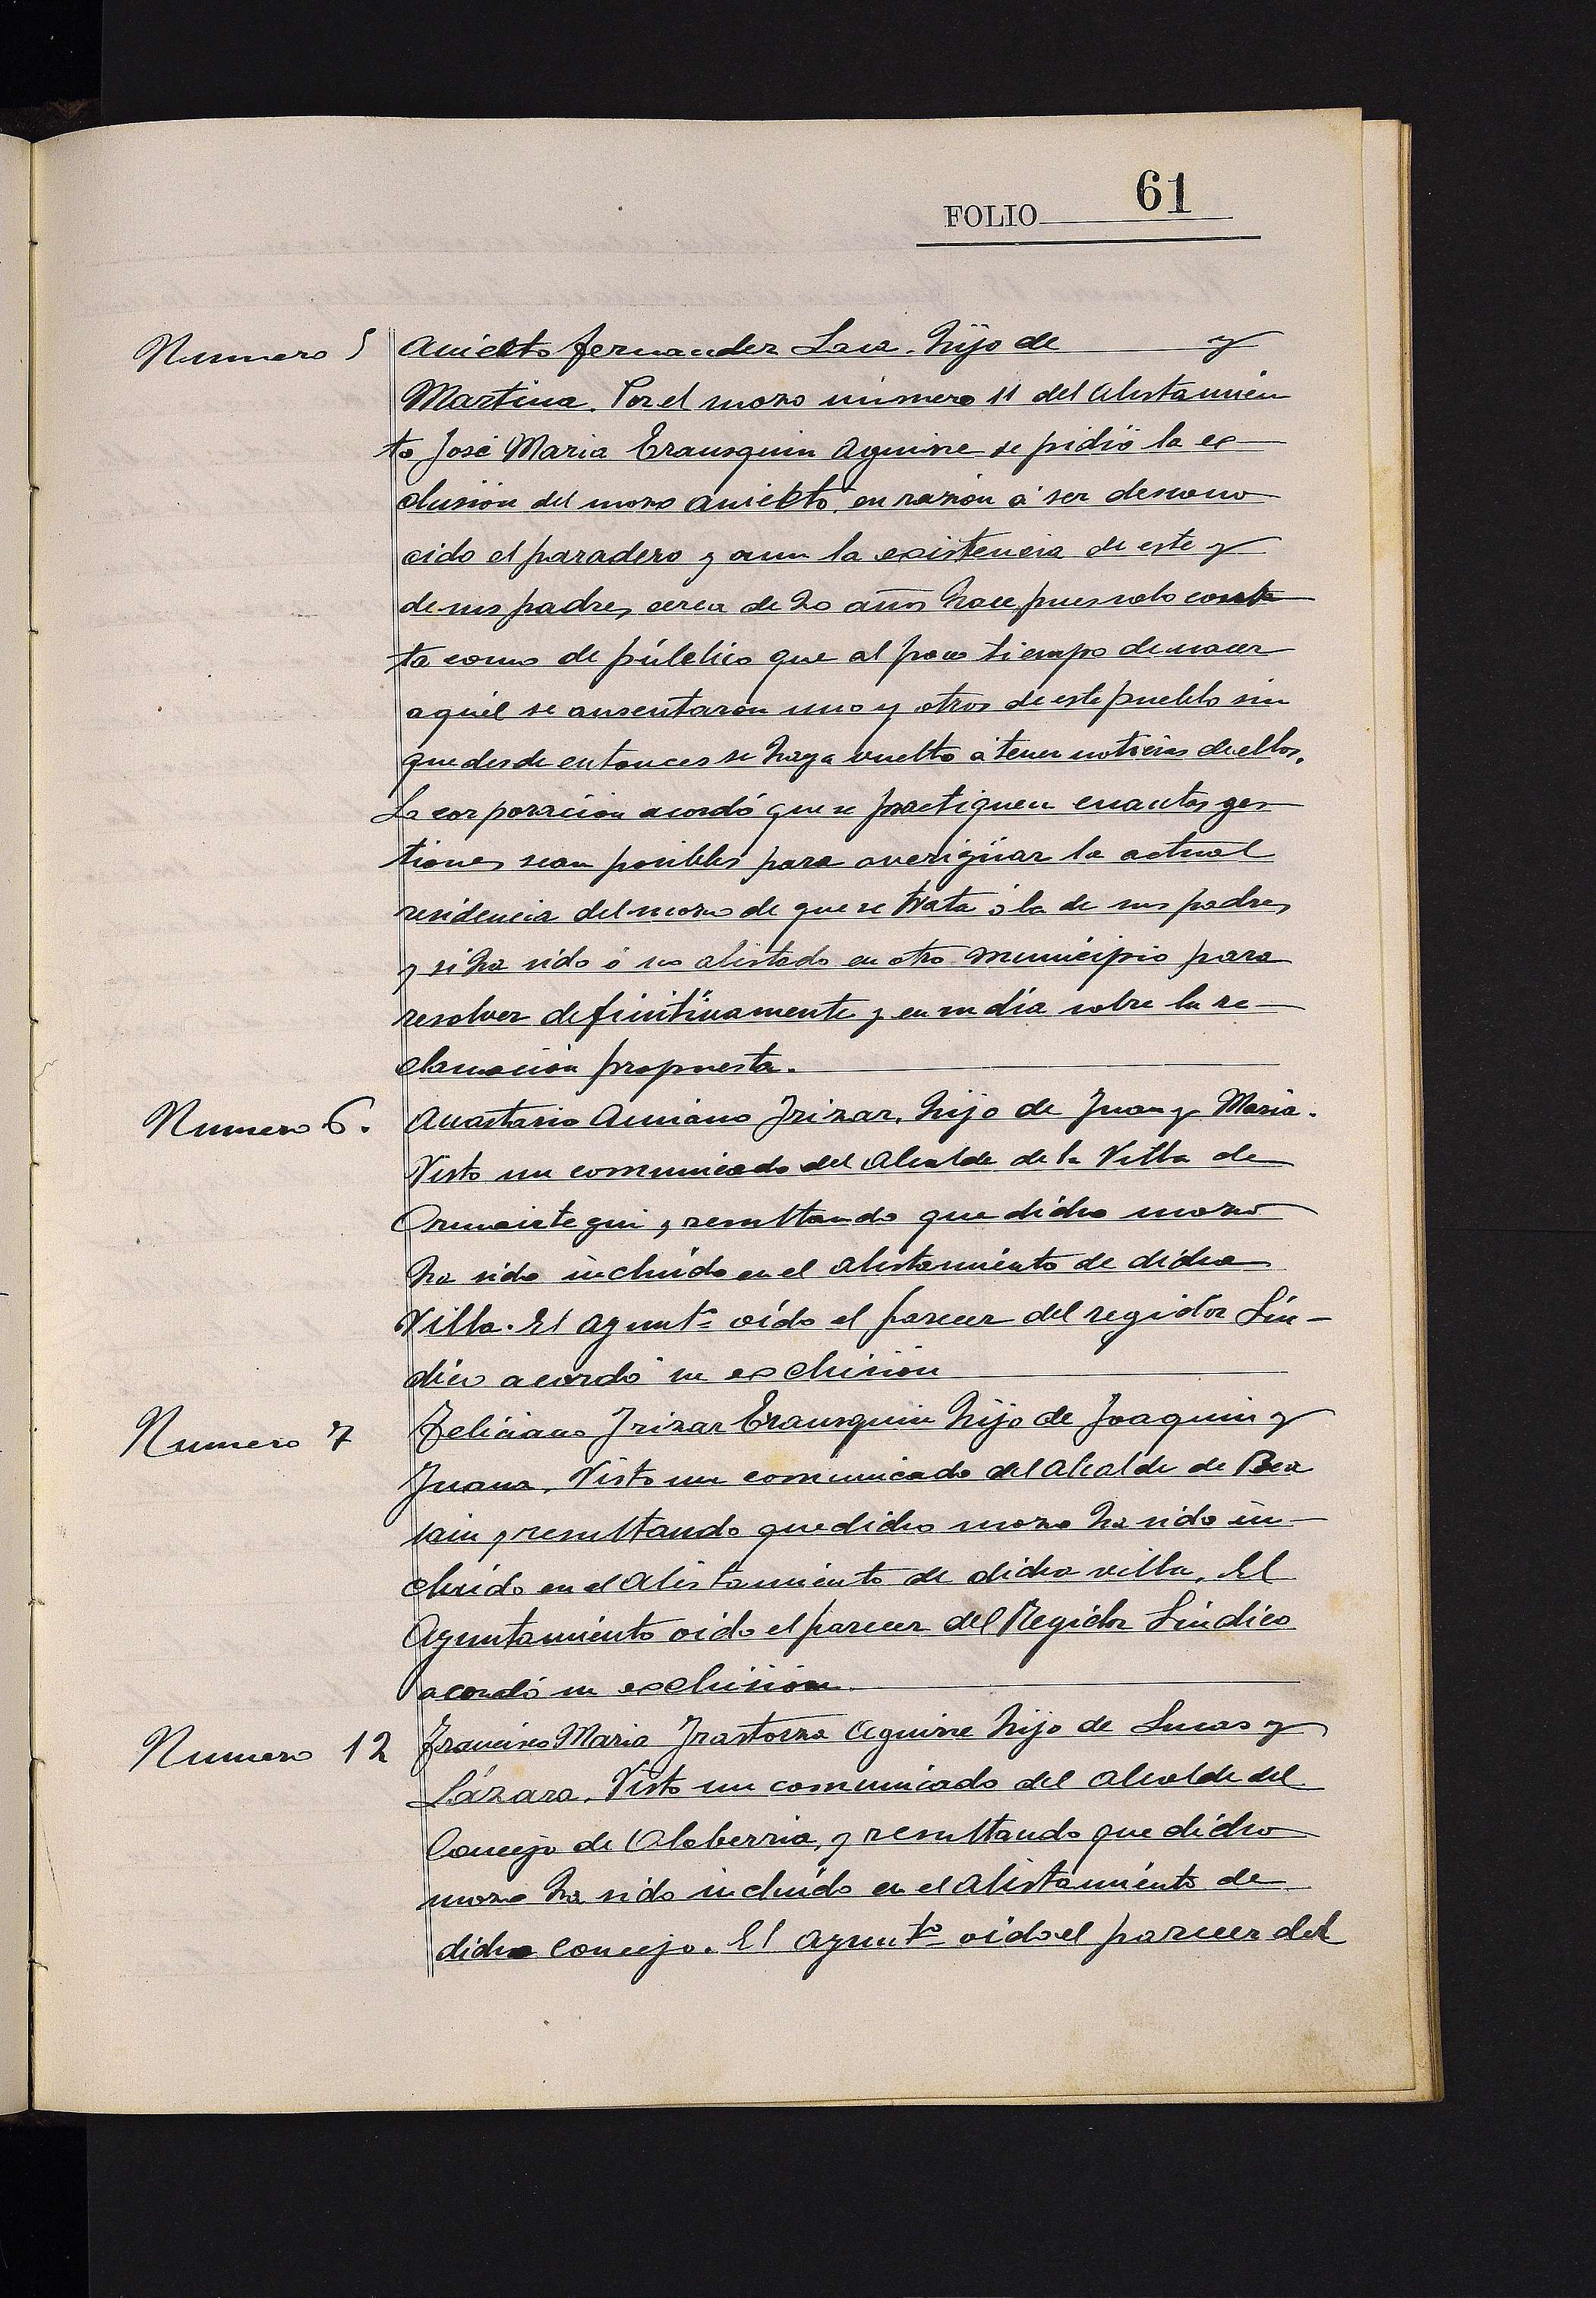 FOLIO 61
Numero 5 Anicleto Fernandez Laiz. hijo de y
Martina. Por el mozo número 11 del Alistamien
to José Maria Erausquin Aguirre se pidió la ex-
clusión del mozo Anicleto, en razón á ser descono
cido el paradero y aun la existencia de este y
de sus padres cerca de 20 años hace, pues solo cons
ta como de público que al poco tiempo de nacer
aquél se ausentaron uno y otros de este pueblo sin
que desde entonces se haya vuelto á tener noticias de ellos.
La corporación acordó que se practiquen cuantas ges
tiones sean posibles para averigüar la actual
residencia del mozo de que se trata ó la de sus padres
y si ha sido ó no alistado en otro municipio para
resolver definitivamente y en su día sobre la re-
clamación propuesta.
Numero 6. Anastasio Amiano Irizar, hijo de Juan y Maria.
Visto un comunicado del Alcalde de la Villa de
Ormaiztegui y resultando que dicho mozo
ha sido incluido en el alistamiento de dicha
Villa. El Ayuntº oído el parecer del regidor Sín-
dico acordó su exclusión
Numero 7 Feliciano Irizar Erausquin hijo de Joaquin y
Juana. Visto un comunicado del Alcalde de Bea
sain y resultando que dicho mozo ha sido in-
cluido en el Alistamiento de dicha villa. El
Ayuntamiento oido el parecer del Regidor Sindico
acordó su exclusion.
Numero 12 Francisco Maria Irastorza Aguirre hijo de Lucas y
Lázara. Visto un comunicado del Alcalde del
Concejo de Olaberria, y resultando que dicho
mozo ha sido incluído en el Alistamiento de
dicho concejo. El Ayuntº oído el parecer del